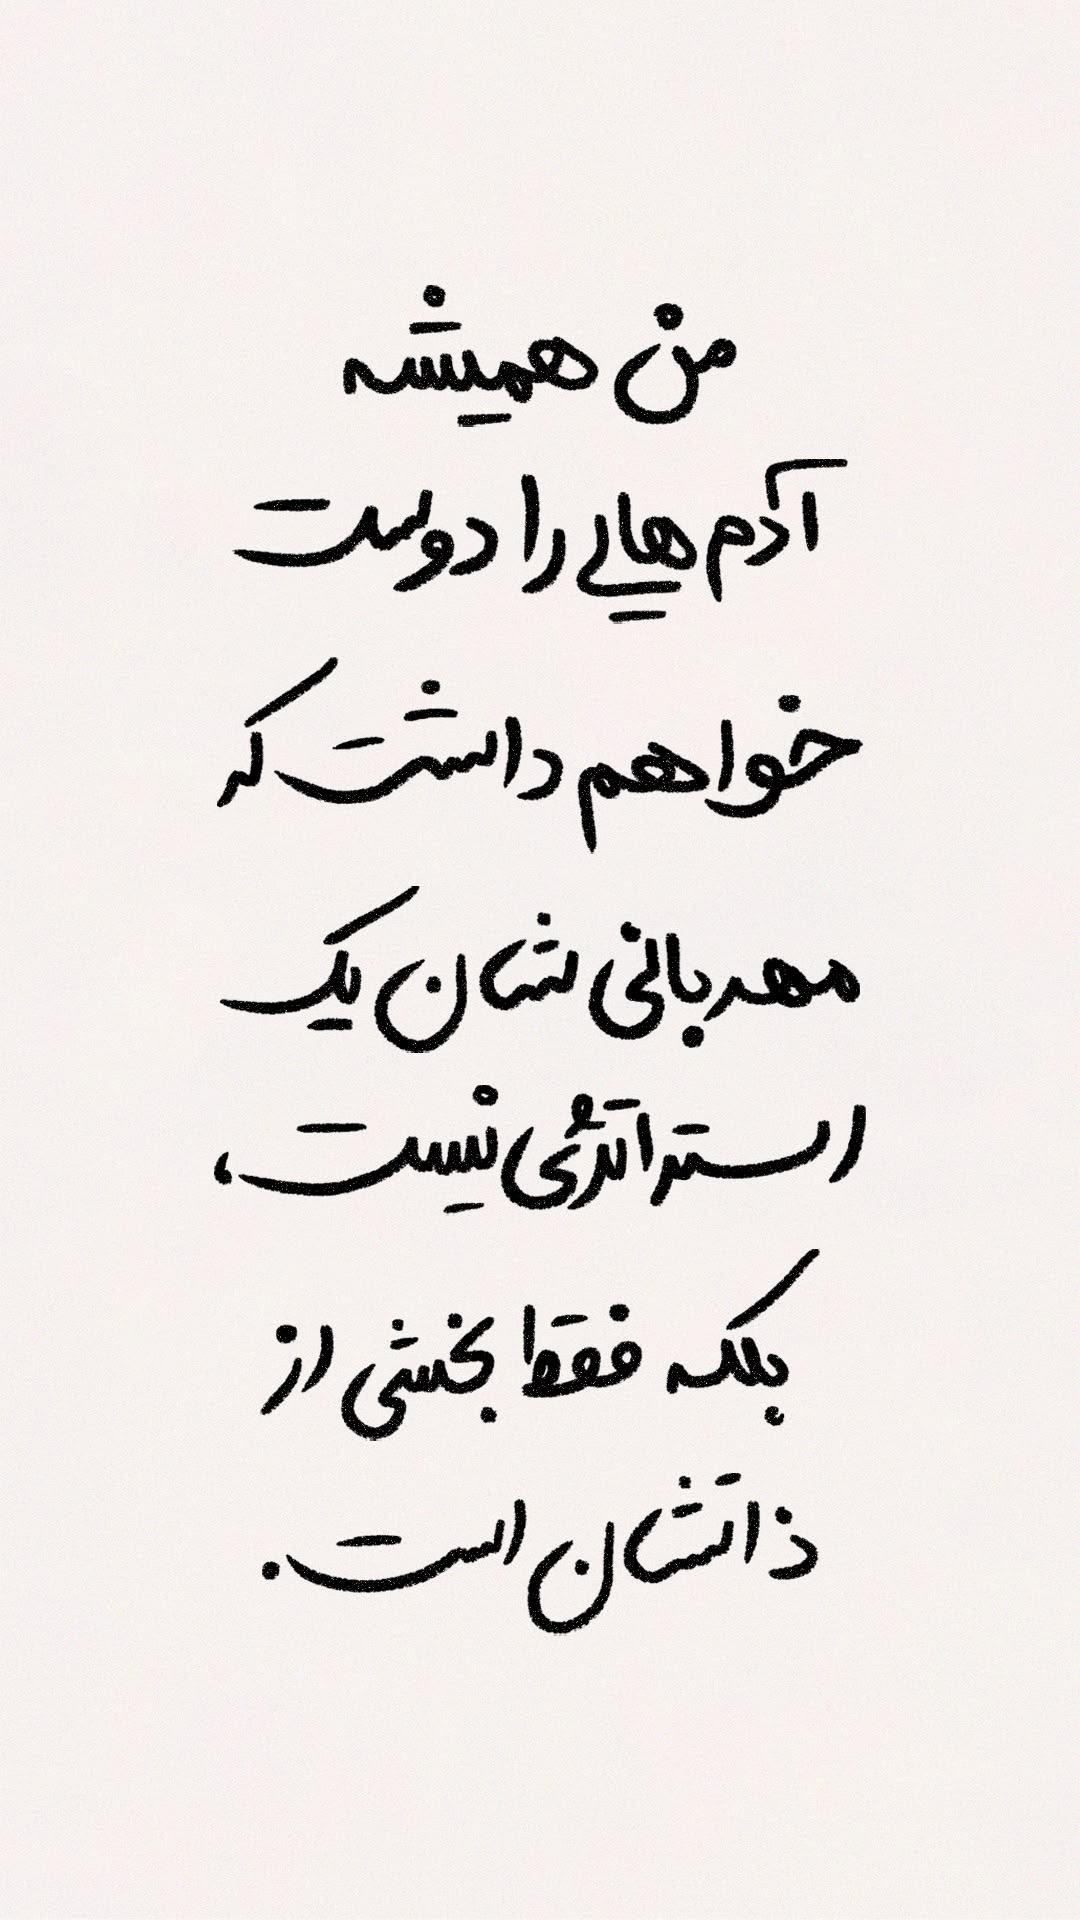 من همیشه
آدم هایی را دوست
خواهم داشت که
مهربانی شان یک
استراتژی نیست،
بلکه فقط بخشی از
ذاتشان است.